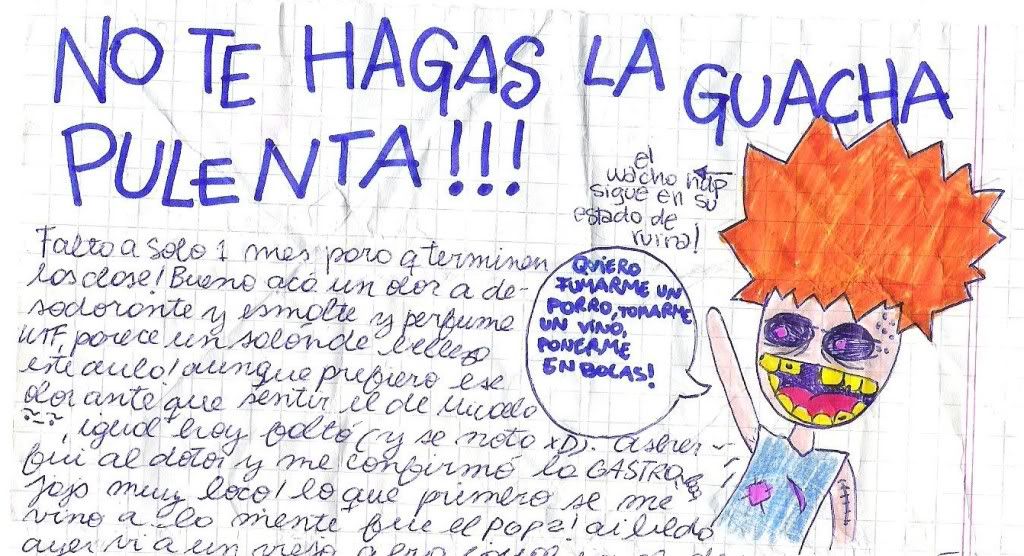 NO TE HAGAS LA GUACHA
PULENTA!!!
el
wacho
sigue en su
estado de
ruina!
QUIERO
FUMARME UN
PORRO, TOMARME
UN VINO,
PONERME
EN BOLAS!
Falta solo 1 mes para q terminen
las clase! Bueno acá un olor a de-
sodorante y esmalte y perfume
WTF, parece un salón de belleza
este aula! aunque prefiero ese
olor ante que sentir el de
~ ~, igual hoy faltó (y se noto xD). a
fui al dotor y me confirmó la GASTRO
jaja muy loco! lo que primero se me
vino a la mente fue el pop
ayer vi a un viejo